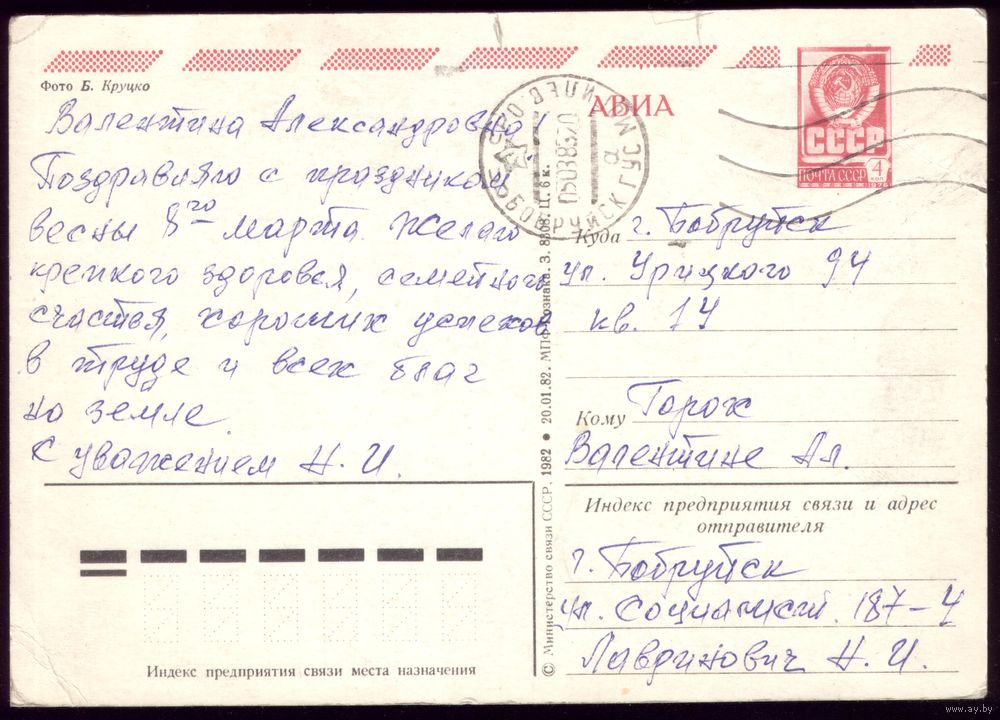 Фото Б. Круцко
АВИА
СССР
ПОЧТА СССР
4 коп
1978
Валентина Александровна!
Поздравляю с праздником
весны 8го марта. Желаю
крепкого здоровья, семейного
счастья, хороших успехов
в труде и всех благ
на земле.
С уважением Н. И.
Куда г. Бобруйск
ул. Урицкого 94
кв. 14
Кому Горох
Валентине Ал.
Индекс предприятия связи и адрес
отправителя
г. Бобруйск
ул. Социалист. 187-4
Лавдинович Н. И.
Индекс предприятия связи места назначения
© Министерство связи СССР. 1982 • 20.01.82. МПФ Гознака. З. 8308. Ц. 6 к.
БОБРУЙСК
www.ay.by